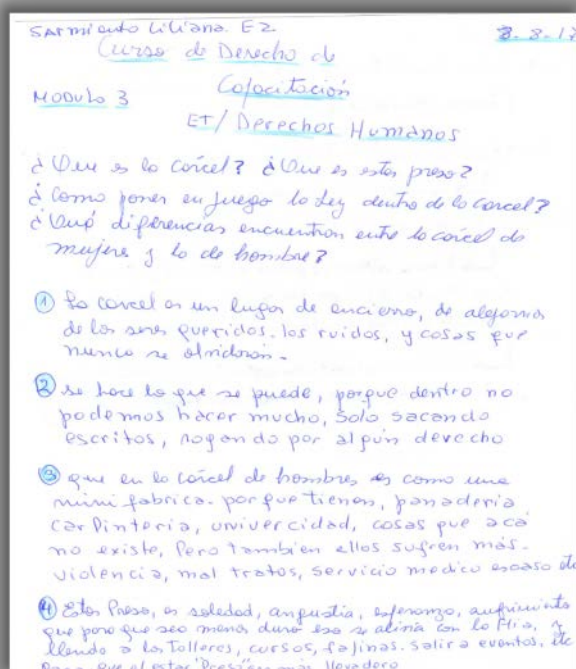 Sarmiento Liliana. E2. 8-8-17
Curso de Derecho de
Capacitación
MODULO 3
ET/ Derechos Humanos
¿Que es la carcel? ¿Que es estar preso?
¿Como poner en juego la Ley dentro de la carcel?
¿Qué diferencias encuentran entre la carcel de
mujere y la de hombre?
① La carcel es un lugar de encierro, de alejarnos
de los seres queridos. los ruidos, y cosas que
nunca se olvidaran.
② se hace lo que se puede, porque dentro no
podemos hacer mucho, solo sacando
escritos, rogando por algun derecho
③ que en la carcel de hombres es como una
mini fabrica. porque tienen, panaderia
carPinteria, univercidad, cosas que acá
no existe, Pero tambien ellos sufren más.
violencia, mal tratos, servicio medico escaso etc
④ Estar Preso, es soledad, angustia, esperanza, sufrimiento
que para que sea menos duro eso se alivia con la Flia, y
llendo a los Talleres, cursos, fajinas. salir a eventos, etc
Para que el estar "Preso" es más llevadero